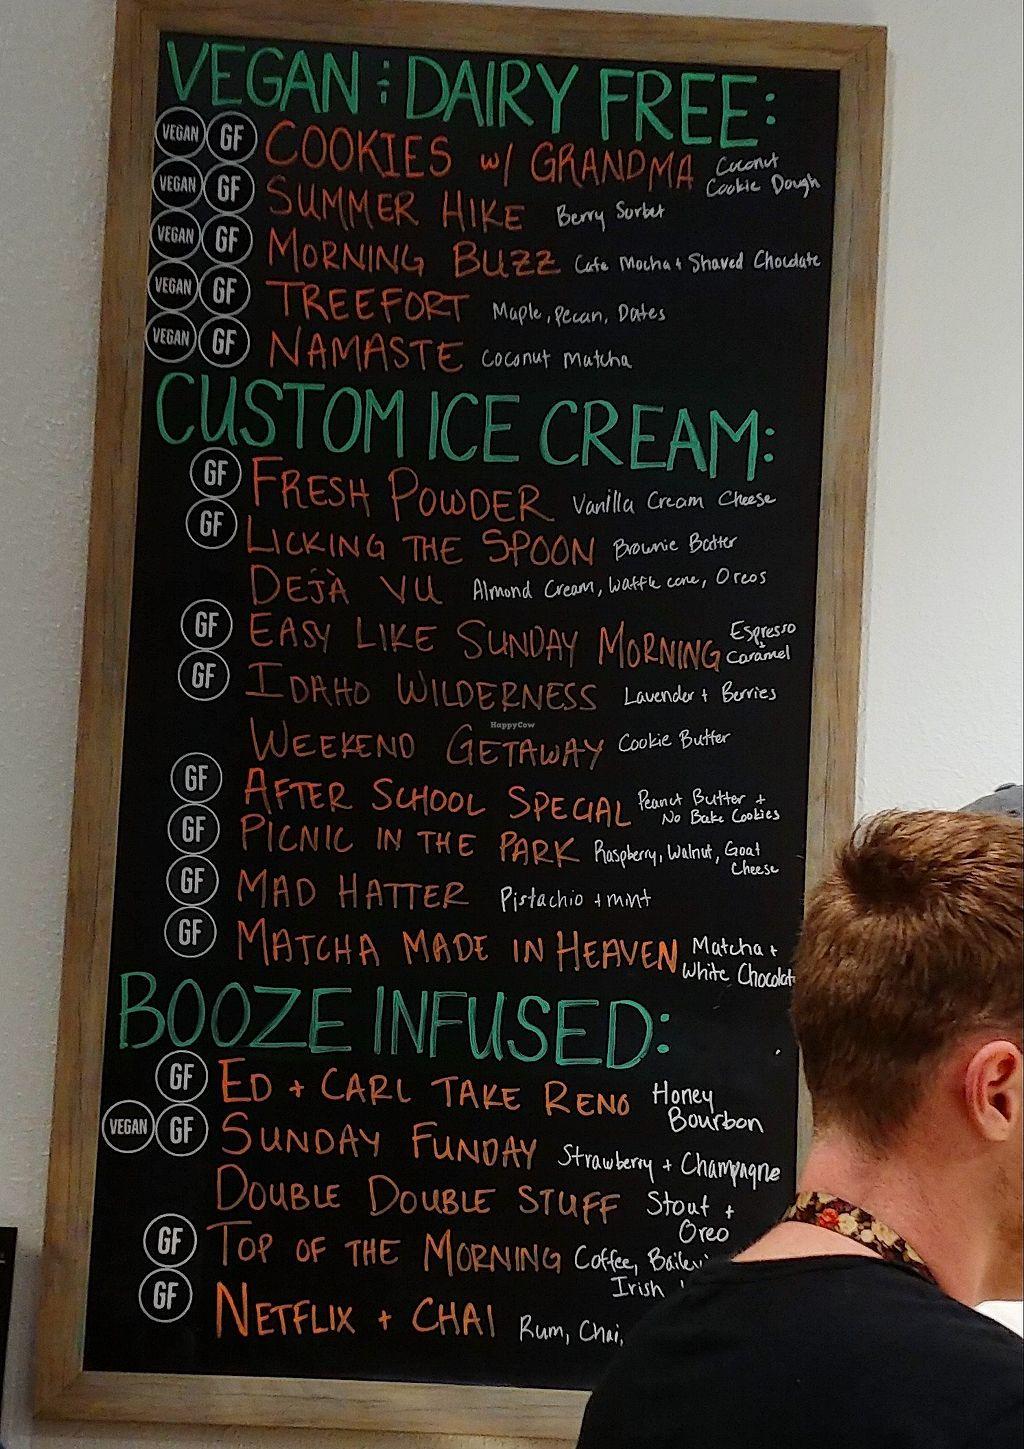 VEGAN + DAIRY FREE:
VEGAN GF COOKIES w/ GRANDMA Coconut
Cookie Dough
VEGAN GF SUMMER HIKE Berry Sorbet
VEGAN GF MORNING BUZZ Cafe Mocha + Shaved Chocolate
VEGAN GF TREEFORT Maple, Pecan, Dates
VEGAN GF NAMASTE Coconut Matcha
CUSTOM ICE CREAM:
GF FRESH POWDER Vanilla Cream Cheese
GF LICKING THE SPOON Brownie Batter
DEJÀ VU Almond Cream, Waffle cone, Oreos
GF EASY LIKE SUNDAY MORNING Espresso
+ Caramel
GF IDAHO WILDERNESS Lavender + Berries
HappyCow
WEEKEND GETAWAY Cookie Butter
GF AFTER SCHOOL SPECIAL Peanut Butter +
No Bake Cookies
GF PICNIC IN THE PARK Raspberry, Walnut, Goat
Cheese
GF MAD HATTER Pistachio + Mint
GF MATCHA MADE IN HEAVEN Matcha +
White Chocolat
BOOZE INFUSED:
GF ED + CARL TAKE RENO Honey
Bourbon
VEGAN GF SUNDAY FUNDAY Strawberry + Champagne
DOUBLE DOUBLE STUFF Stout +
Oreo
GF TOP OF THE MORNING Coffee, Bailey
Irish
GF NETFLIX + CHAI Rum, Chai,